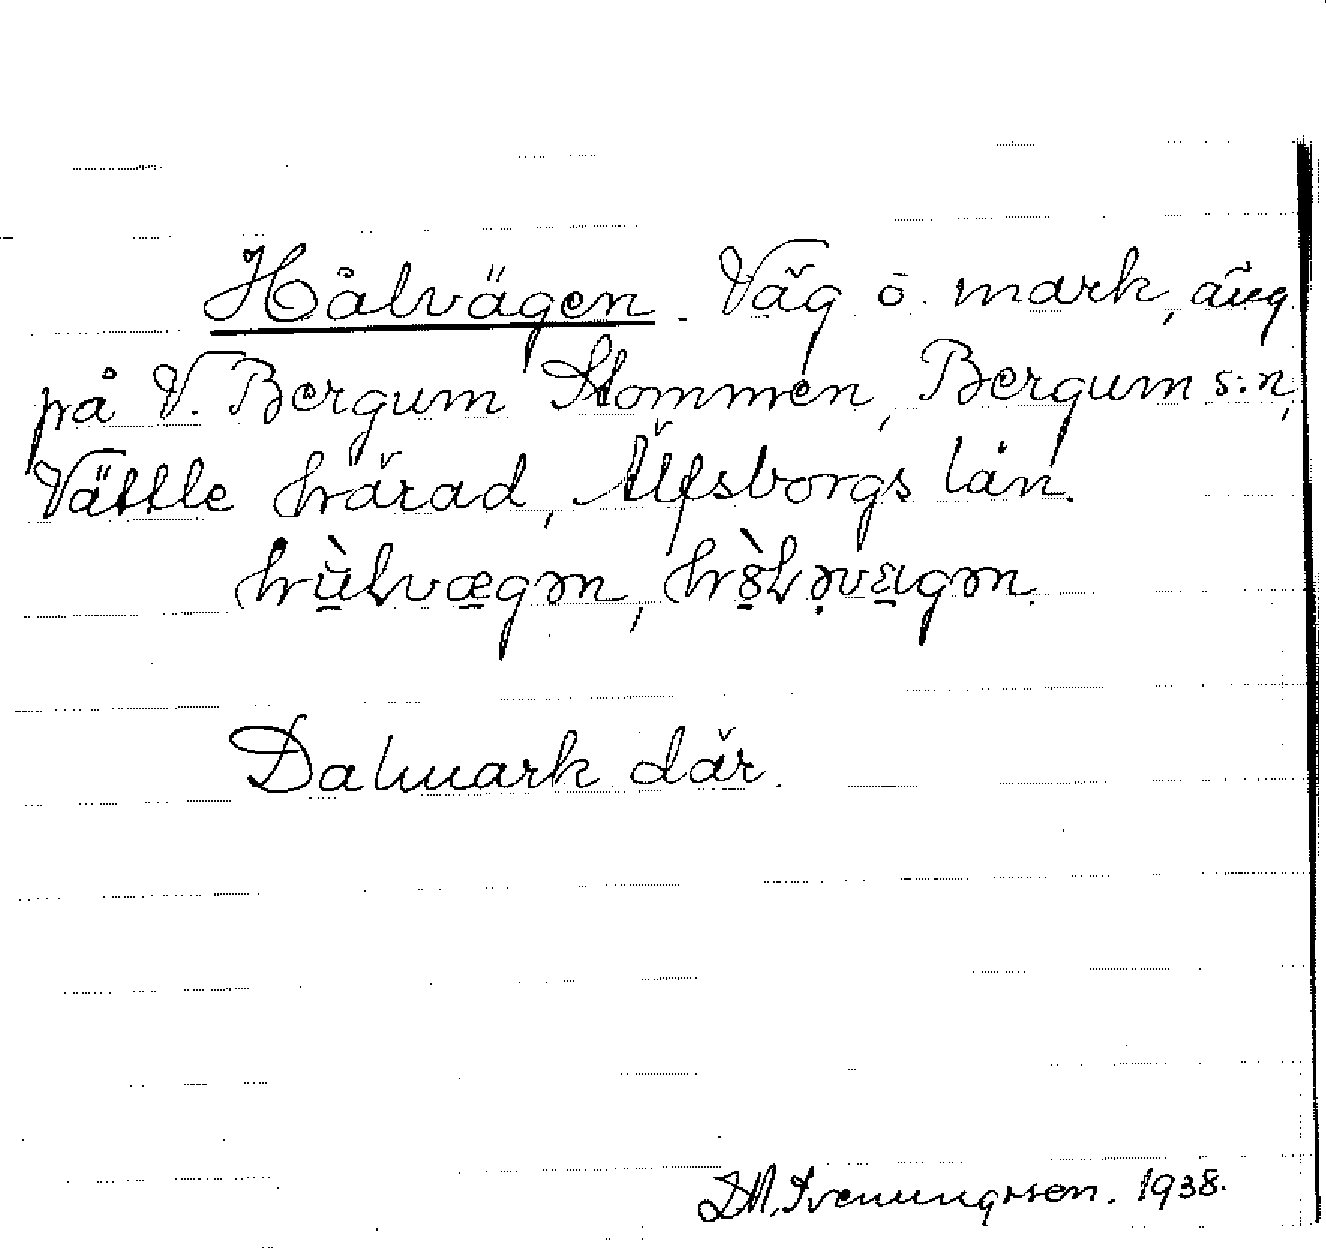 Hålvägen. Väg o. mark, äng
på V. Bergum Stommen, Bergum s:n,
Vättle härad, Älfsborgs län.
Dalmark där.
Svenungsson. 1938.